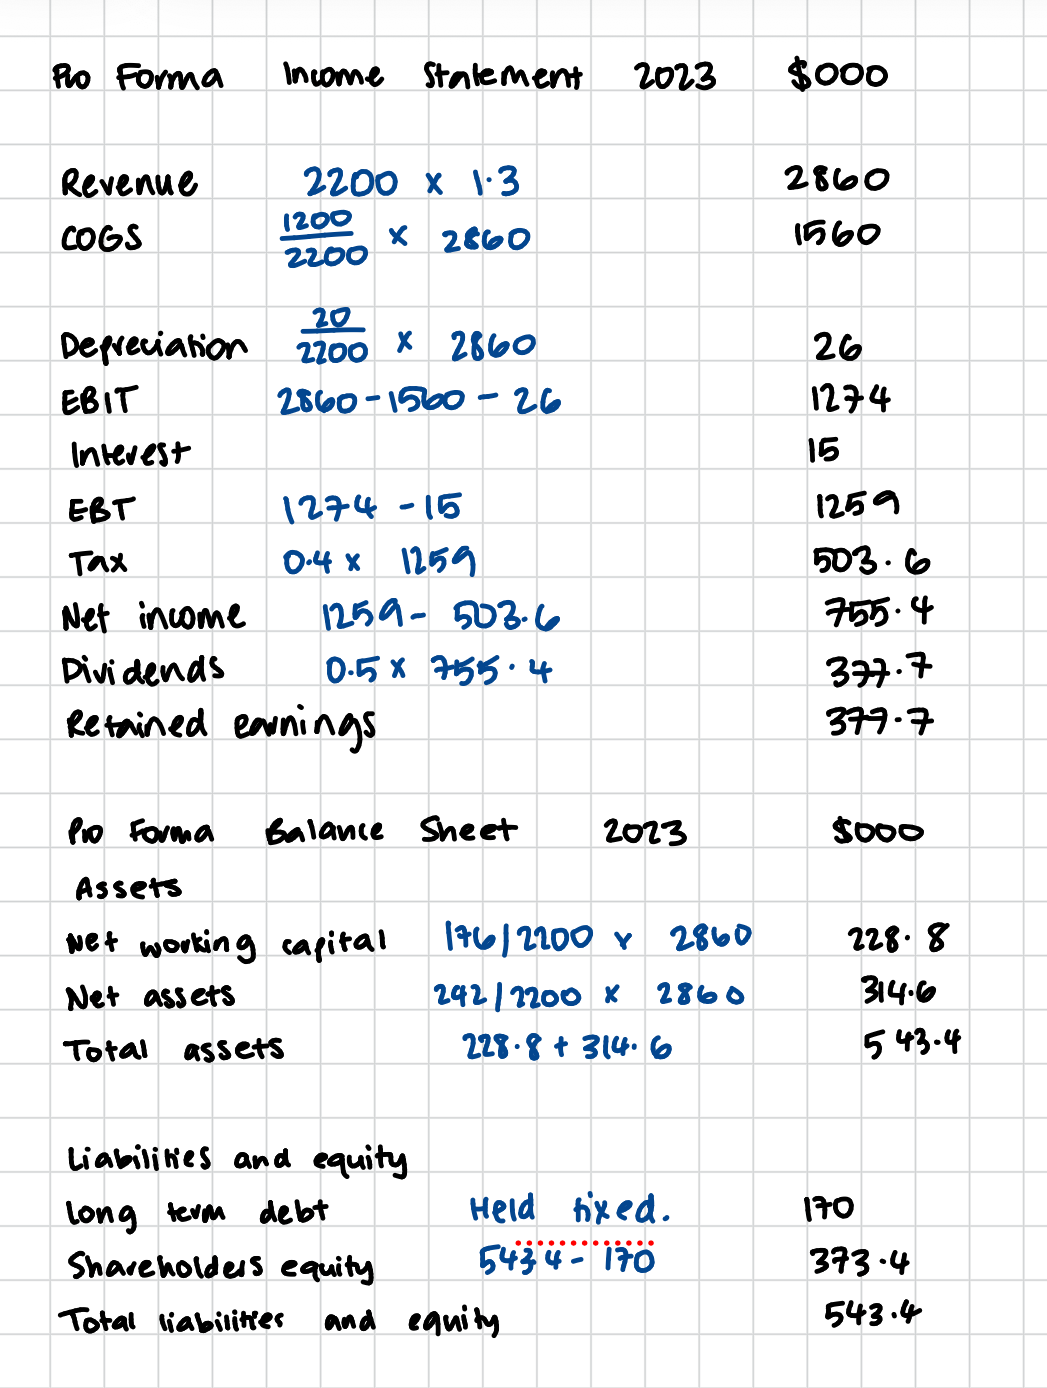 Pro Forma Income Statement 2023 $000
Revenue 2200 x 1.3 2860
COGS 1200/2200 x 2860 1560
Depreciation 20/2200 x 2860 26
EBIT 2860 - 1560 - 26 1274
Interest 15
EBT 1274 - 15 1259
Tax 0.4 x 1259 503.6
Net income 1259 - 503.6 755.4
Dividends 0.5 x 755.4 377.7
Retained earnings 377.7
Pro Forma Balance Sheet 2023 $000
Assets
Net working capital 176/2200 x 2860 228.8
Net assets 242/2200 x 2860 314.6
Total assets 228.8 + 314.6 543.4
Liabilities and equity
Long term debt Held fixed. 170
Shareholders equity 543 4 - 170 373.4
Total liabilities and equity 543.4